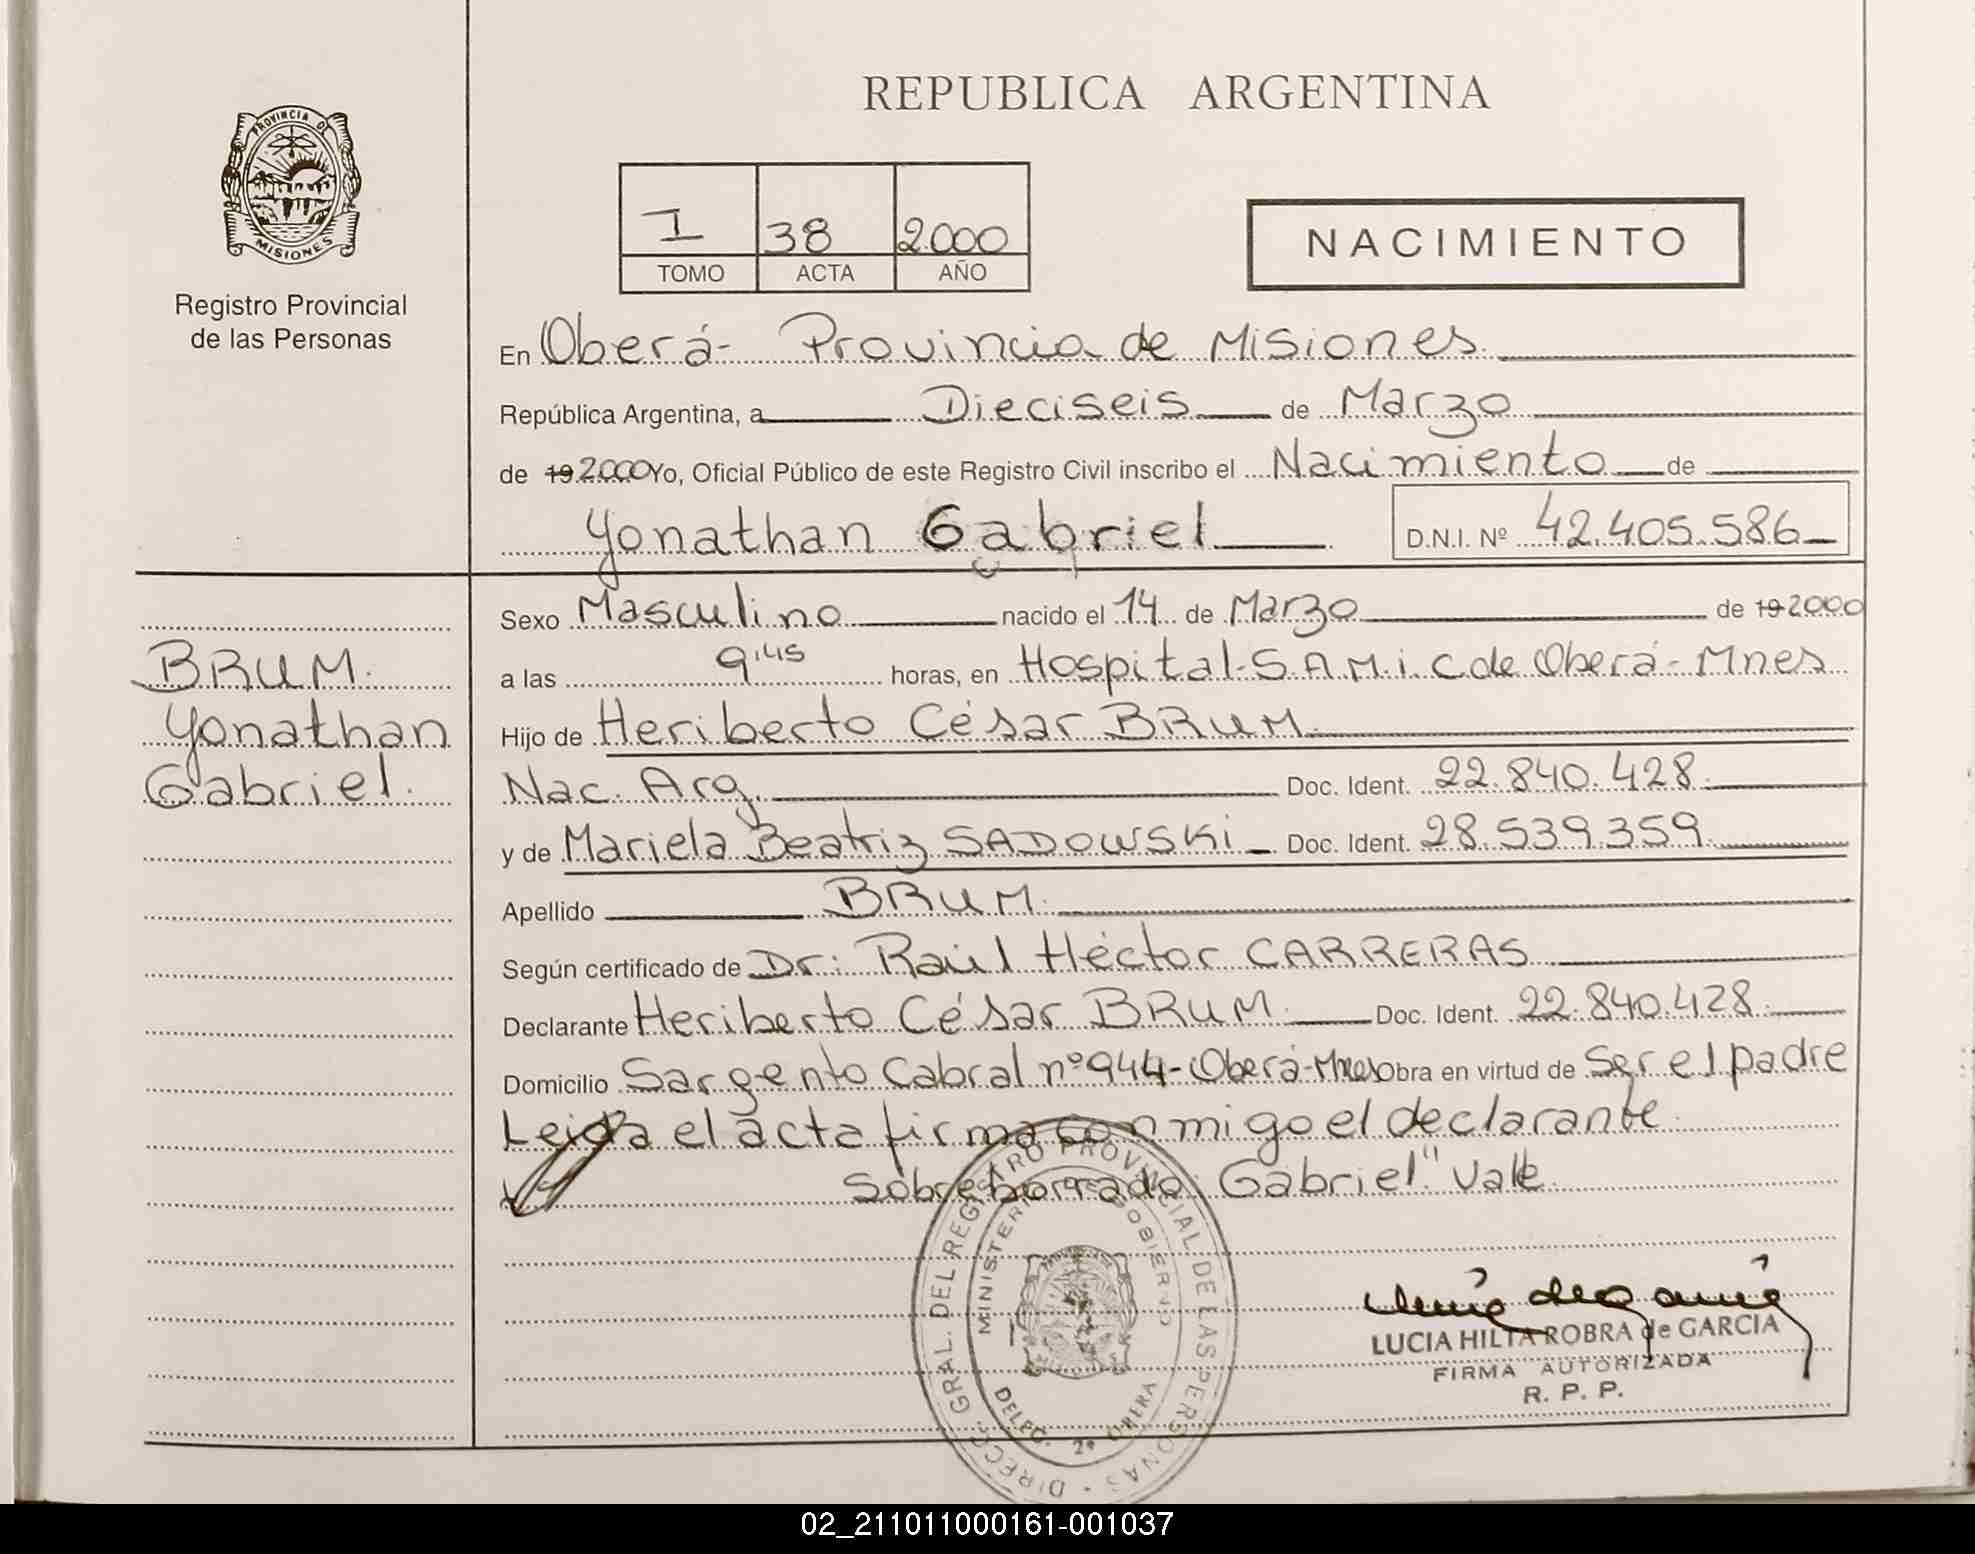 REPUBLICA ARGENTINA
PROVINCIA D
MISIONES
Registro Provincial
de las Personas
I 38 2.000
TOMO ACTA AÑO
NACIMIENTO
En Oberá- Provincia de Misiones.
República Argentina, a Dieciseis de Marzo
de 19 2.000 Yo, Oficial Público de este Registro Civil inscribo el Nacimiento de
Yonathan Gabriel D.N.I. Nº 42.405.586
Sexo Masculino nacido el 14 de Marzo de 19 2000
a las 9'45 horas, en Hospital-S.A.M.i.C de Oberá- Mnes
Hijo de Heriberto César BRUM.
Nac. Arg. Doc. Ident. 22.840.428.
y de Mariela Beatriz SADOWSKi Doc. Ident. 28.539.359
Apellido BRUM.
Según certificado de Dr: Raúl Héctor CARRERAS
Declarante Heriberto César BRUM. Doc. Ident. 22.840.428.
Domicilio Sargento Cabral nº 944-Oberá-Mnes Obra en virtud de Ser el padre
Leida el acta firma conmigo el declarante.
Sobreborrado: Gabriel" Vale
BRUM.
Yonathan
Gabriel.
DIRECC. GRAL. DEL REGISTRO PROVINCIAL DE LAS PERSONAS
MINISTERIO DE GOBIERNO
DELEG. 2ª OBERA
LUCIA HILTA ROBRA de GARCIA
FIRMA AUTORIZADA
R. P. P.
02_211011000161-001037